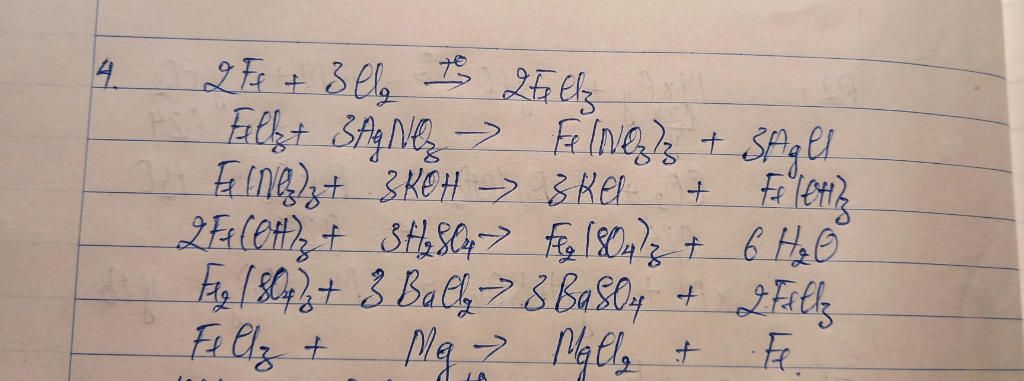 4. 2Fe + 3Cl₂ →t° 2FeCl₃
FeCl₃ + 3AgNO₃ → Fe(NO₃)₃ + 3AgCl
Fe(NO₃)₃ + 3KOH → 3KCl + Fe(OH)₃
2Fe(OH)₃ + 3H₂SO₄ → Fe₂(SO₄)₃ + 6H₂O
Fe₂(SO₄)₃ + 3BaCl₂ → 3BaSO₄ + 2FeCl₃
FeCl₃ + Mg → MgCl₂ + Fe.